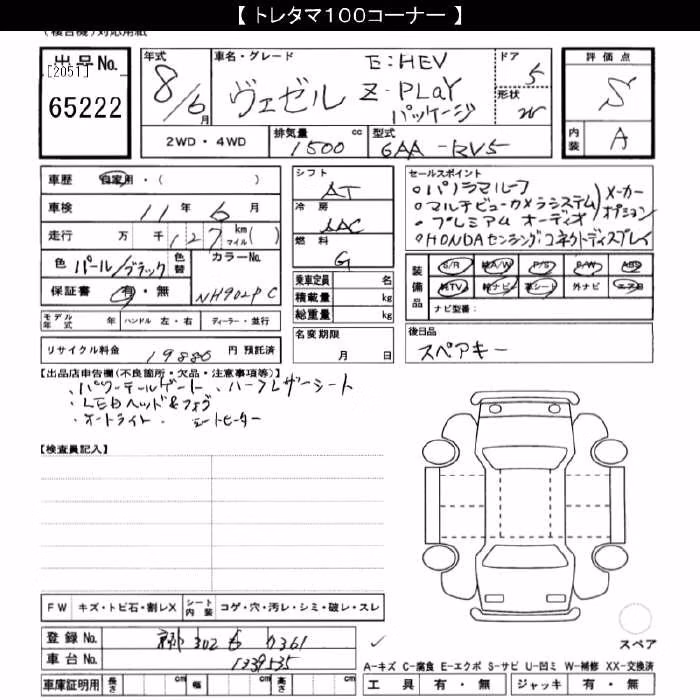 【 トレタマ100コーナー 】
出品No.
[2051]
65222
年式
8/6月
車名・グレード
ヴェゼル
E:HEV
Z-PLAY
パッケージ
ドア
5
形状
W
評価点
S
内装
A
2WD・4WD
排気量 cc
1500
型式
6AA-RV5
車歴
自家用・( )
車検
11年 6月
走行
万 千 127 km マイル( )
色
パール/ブラック
色替
カラーNo.
NH902PC
保証書
有・無
モデル年式 年
ハンドル 左・右
ディーラー・並行
リサイクル料金
19880 円 預託済
シフト
AT
冷房
AAC
燃料
G
乗車定員 名
積載量 kg
総重量 kg
名変期限
月 日
セールスポイント
・パノラマルーフ
・マルチビューカメラシステム
・プレミアム オーディオ
メーカーオプション
・HONDAセンシング・コネクトディスプレイ
装備品
S/R
純A/W
P/S
P/W
ABS
純TV
純ナビ
革シート
外ナビ
エアB
ナビ型番:
後日品
スペアキー
【出品店申告欄(不良箇所・欠品・注意事項等)】
・パワーテールゲート ・ハーフレザーシート
・LEDヘッド&フォグ
・オートライト ・シートヒーター
【検査員記入】
FW
キズ・トビ石・割レX
シート内装
コゲ・穴・汚レ・シミ・破レ・スレ
登録No.
302 も 0361
車台No.
1339535
車庫証明用
長さ cm
幅 cm
高さ cm
スペア
A-キズ C-腐食 E-エクボ S-サビ U-凹ミ W-補修 XX-交換済
工具 有・無
ジャッキ 有・無